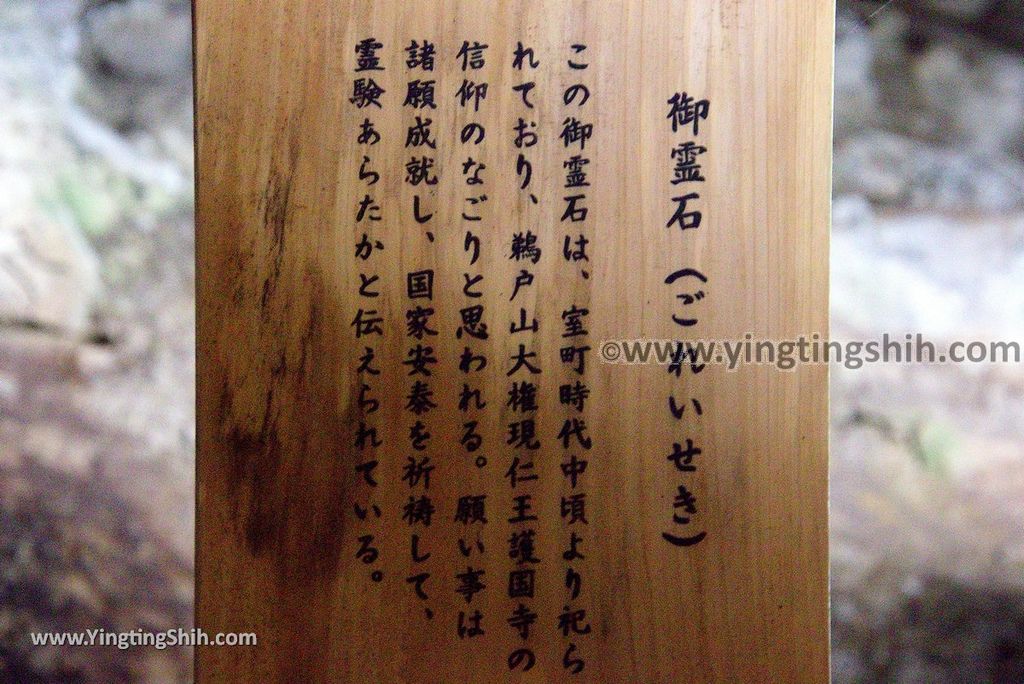 御霊石(ごれいせき)
この御霊石は、室町時代中頃より祀ら
れており、鵜戸山大権現仁王護国寺の
信仰のなごりと思われる。願い事は
諸願成就し、国家安泰を祈祷して、
霊験あらたかと伝えられている。
©www.yingtingshih.com
www.YingtingShih.com